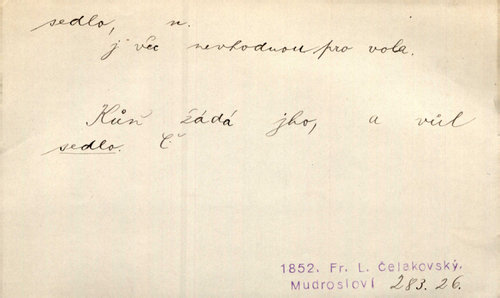 sedlo, n.
j věc nevhodnou pro vola.
Kůň žádá jho, a vůl
sedlo. Č
1852. Fr. L. Čelakovský.
Mudrosloví 283.26.